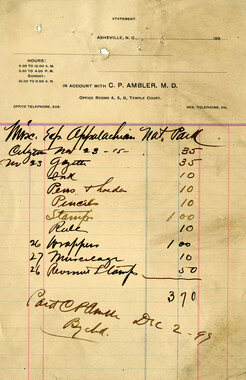 STATEMENT.
ASHEVILLE, N. C., 189
HOURS:
9.30 TO 12.00 A. M.
3.30 TO 4.00 P. M.
SUNDAY:
10.00 TO 11.00 A. M.
IN ACCOUNT WITH C. P. AMBLER, M. D.
OFFICE ROOMS 4, 5, 6, TEMPLE COURT.
OFFICE TELEPHONE, RES. TELEPHONE,
Misc. Exp Appalachian Nat. Park
Citizen Nov 23-15- 35
Nv 23 Gazette 35
Ink 10
Pens & holder 10
Pencils 10
Stamps 1 00
Rule 10
26 Wrappers 1 00
27 Mucilage 10
26 Revenue Stamps 50
3 70
Paid C P Ambler
By Dec 2-99